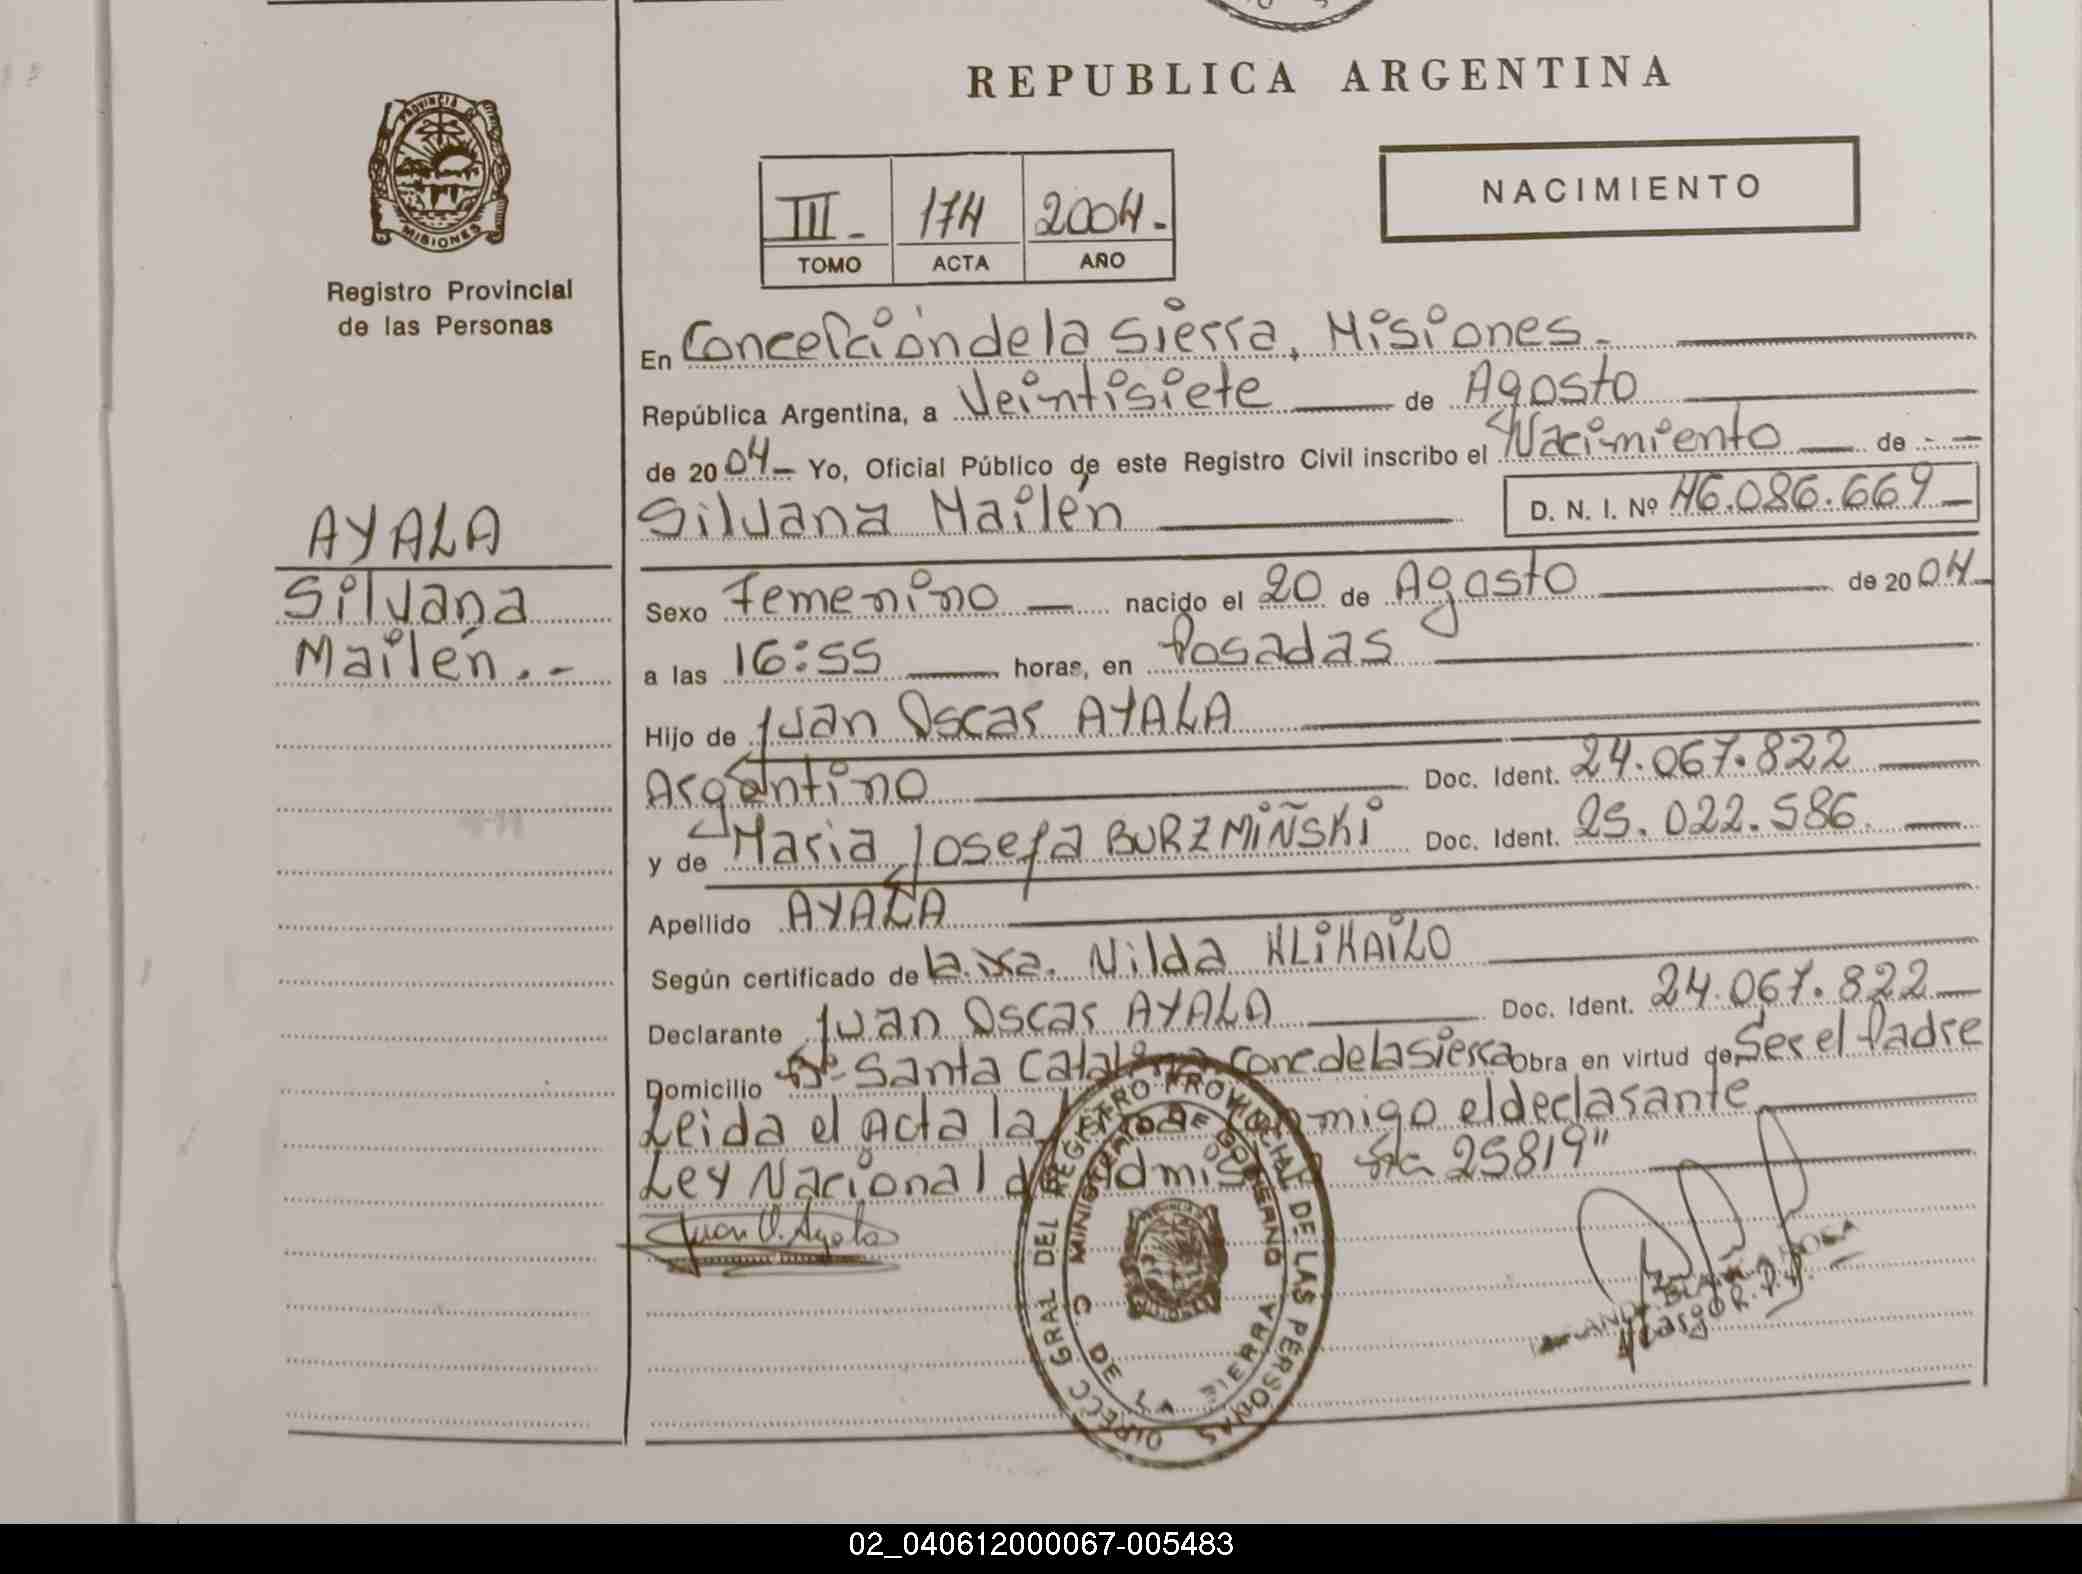 REPUBLICA ARGENTINA
PROVINCIA DE
MISIONES
Registro Provincial
de las Personas
III - 174 2004.-
TOMO ACTA AÑO
NACIMIENTO
En Concepción de la Sierra, Misiones.-
República Argentina, a Veintisiete de Agosto
de 2004- Yo, Oficial Público de este Registro Civil inscribo el Nacimiento de - -
Silvana Mailén D. N. I. Nº 46.086.669-
AYALA
Silvana
Mailén.-
Sexo Femenino nacido el 20 de Agosto de 2004-
a las 16:55 horas, en Posadas
Hijo de Juan Oscar AYALA
Argentino Doc. Ident. 24.067.822
y de Maria Josefa BURZMIÑSKI Doc. Ident. 25.022.586.
Apellido AYALA
Según certificado de la Nilda KLIKAILO
Declarante Juan Oscar AYALA Doc. Ident. 24.067.822
Domicilio Santa Catalina Conc de la Sierra Obra en virtud de Ser el Padre
Leida el Acta la conmigo el declarante
Ley Nacional de 25819"
Juan O. Ayala
DIRECC GRAL DEL REGISTRO PROVINCIAL DE LAS PERSONAS
MINISTERIO DE GOBIERNO
C. DE LA SIERRA
02_040612000067-005483